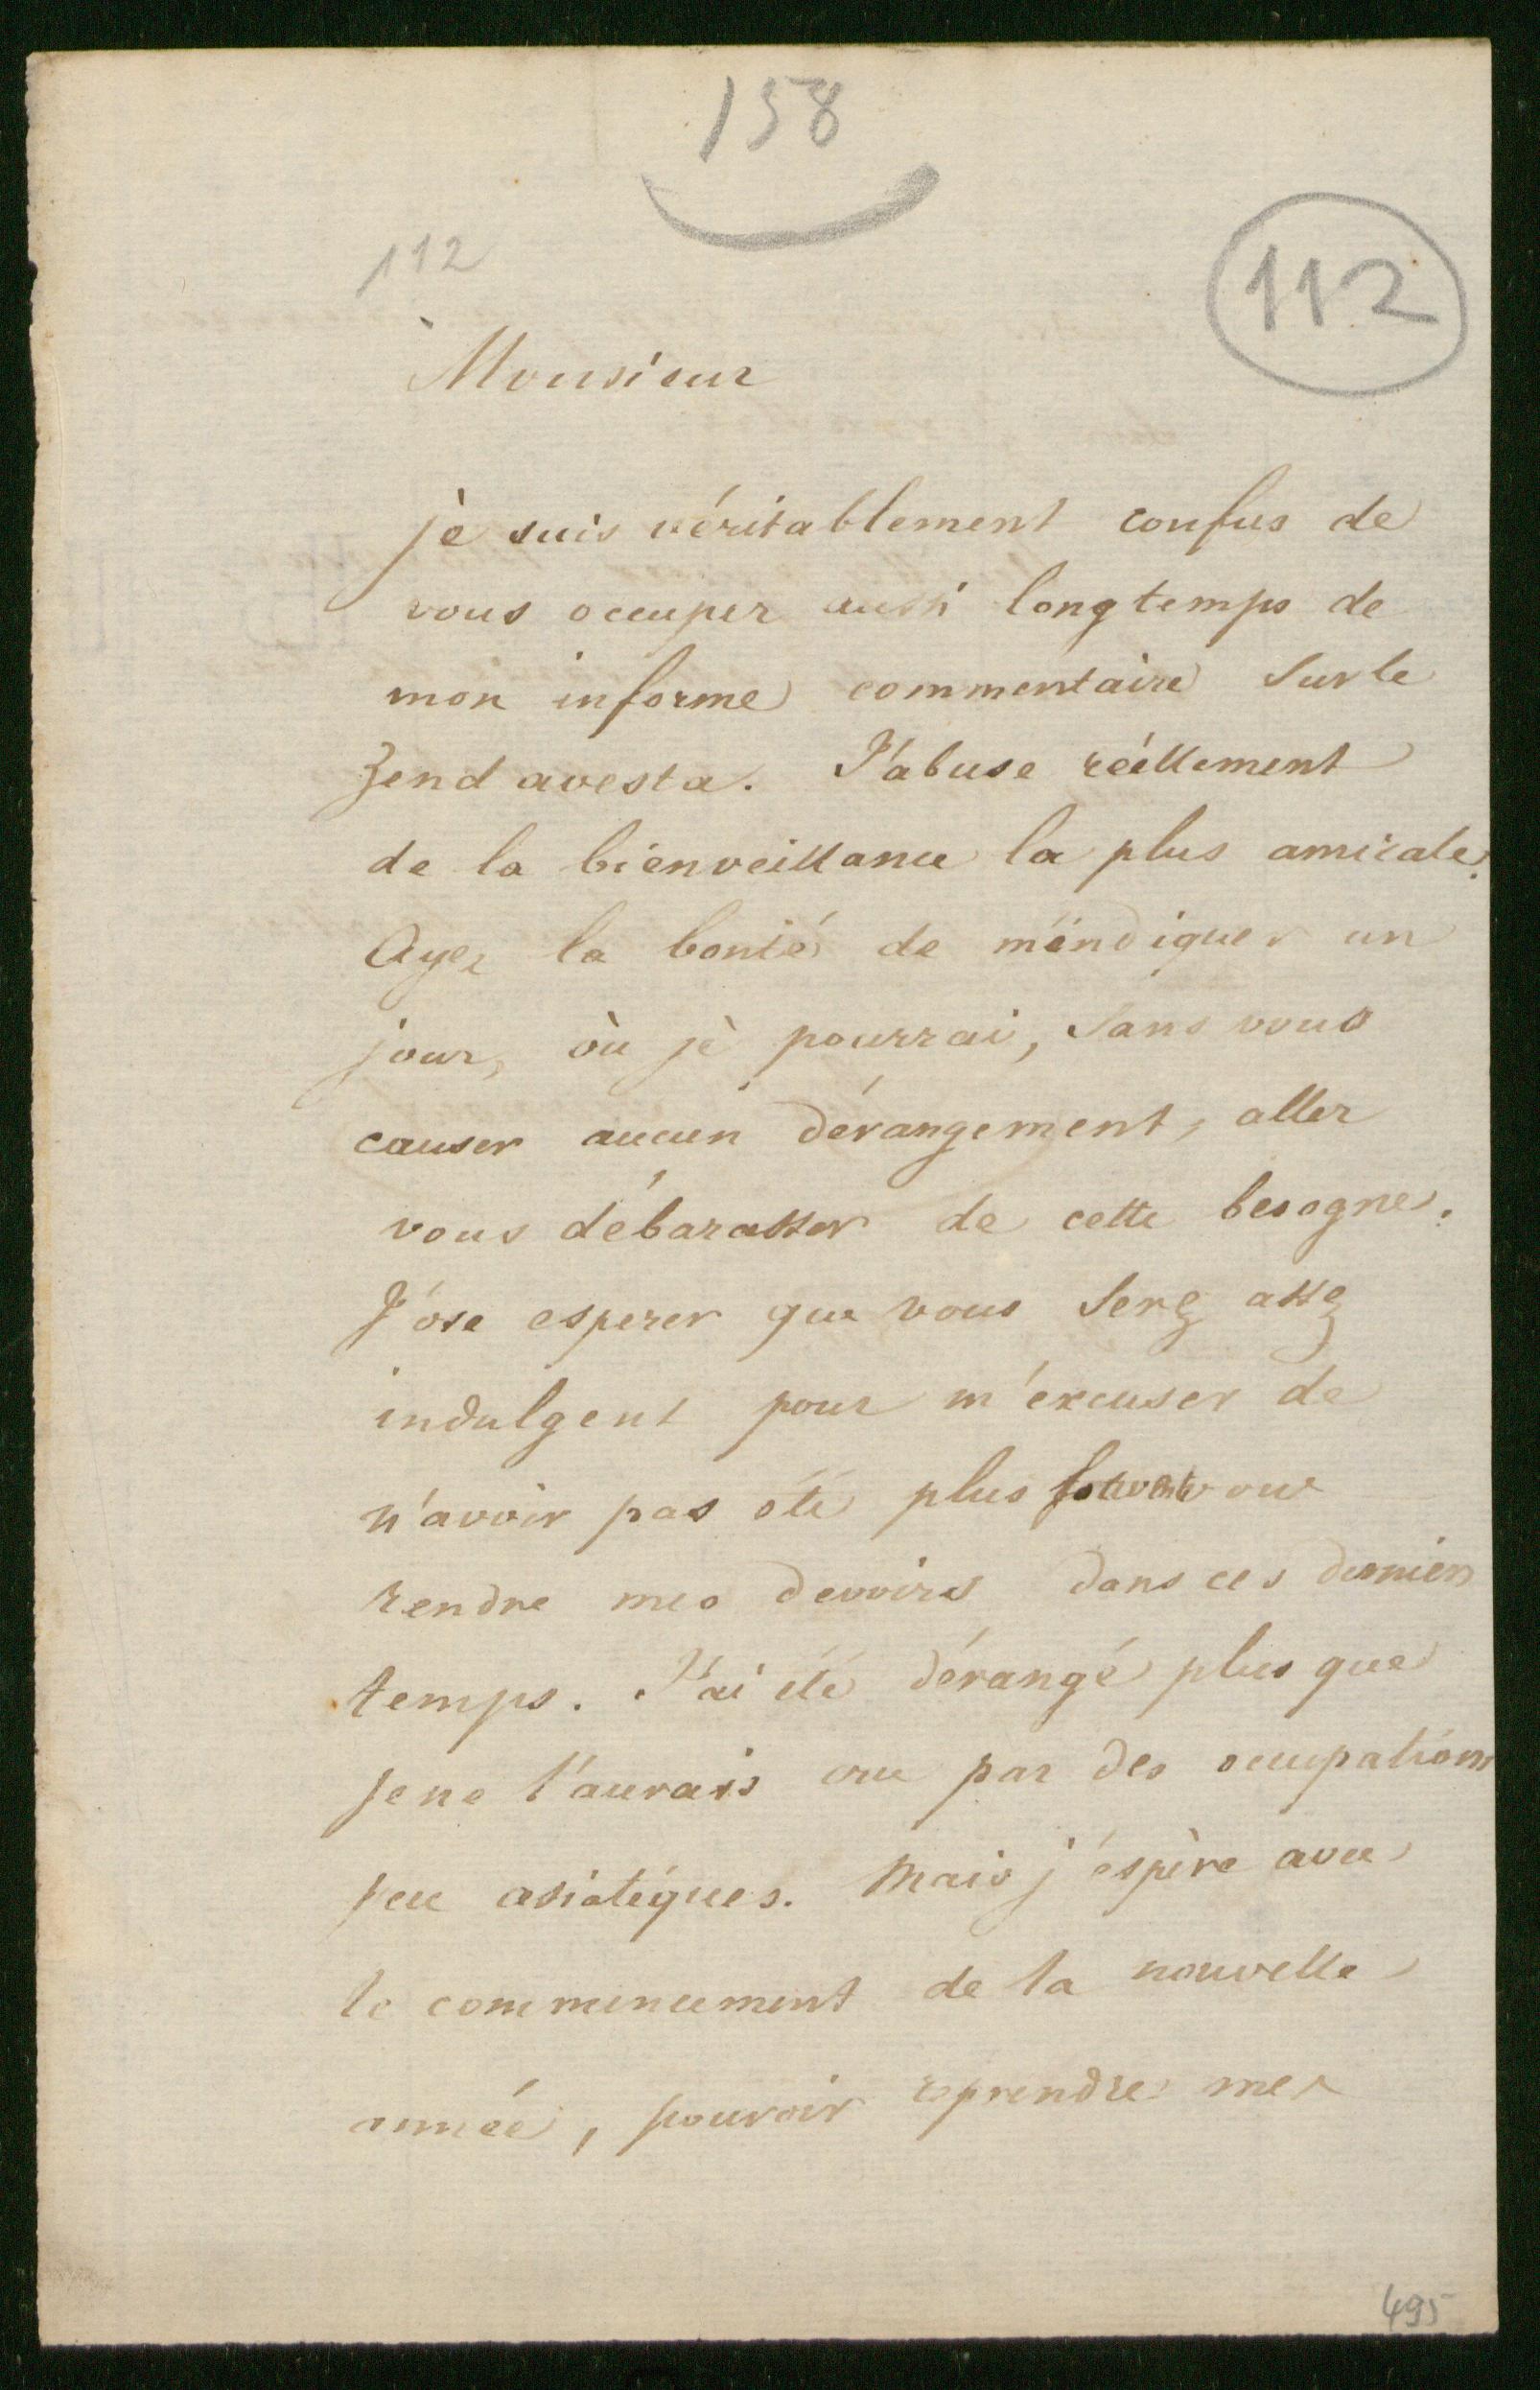 158
112
112
Monsieur
je suis véritablement confus de
vous occuper aussi longtemps de
mon informe commentaire sur le
Zend avesta. J'abuse réellement
de la bienveillance la plus amicale.
Ayez la bonté de m'indiquer un
jour, où je pourrai, sans vous
causer aucun dérangement, aller
vous débarasser de cette besogne.
J'ose esperer que vous serez assez
indulgent pour m'excuser de
n'avoir pas été plus souvent vous
rendre mes devoirs dans ces derniers
temps. J'ai été dérangé plus que
je ne l'aurais cru par des occupations
peu asiatiques. Mais j'éspère avec
le commencement de la nouvelle
année, pouvoir reprendre mes
495